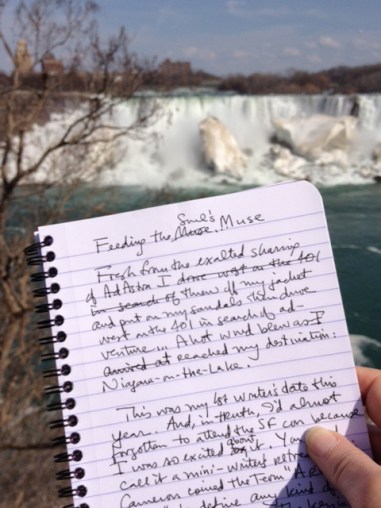 Soul's
Feeding the Muse. Muse
Fresh from the exalted sharing
of Ad Astra I drove west on the 401
in search of threw off my jacket
and put on my sandals then drove
west on the 401 in search of ad-
venture ... A hot wind blew as I
arrived at reached my destination:
Niagara-on-the-Lake.
This was my 1st writer's date this
year. And, in truth, I'd almost
forgotten to attend the SF con because
about
I was so excited for it. You
call it a mini-writer's
Cameron coined the Term
define any kind